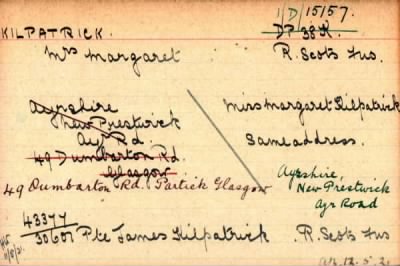 1/D/15/57.
KILPATRICK. DP 38 K.
Mrs Margaret R. Scots Fus.
Ayrshire Miss Margaret Kilpatrick
New Prestwick
Ayr Rd. Same address.
49 Dumbarton Rd. Ayrshire,
Glasgow New Prestwick
49 Dumbarton Rd. Partick Glasgow Ayr Road
43377
30607 Pte James Kilpatrick R. Scots Fus
12.5.21